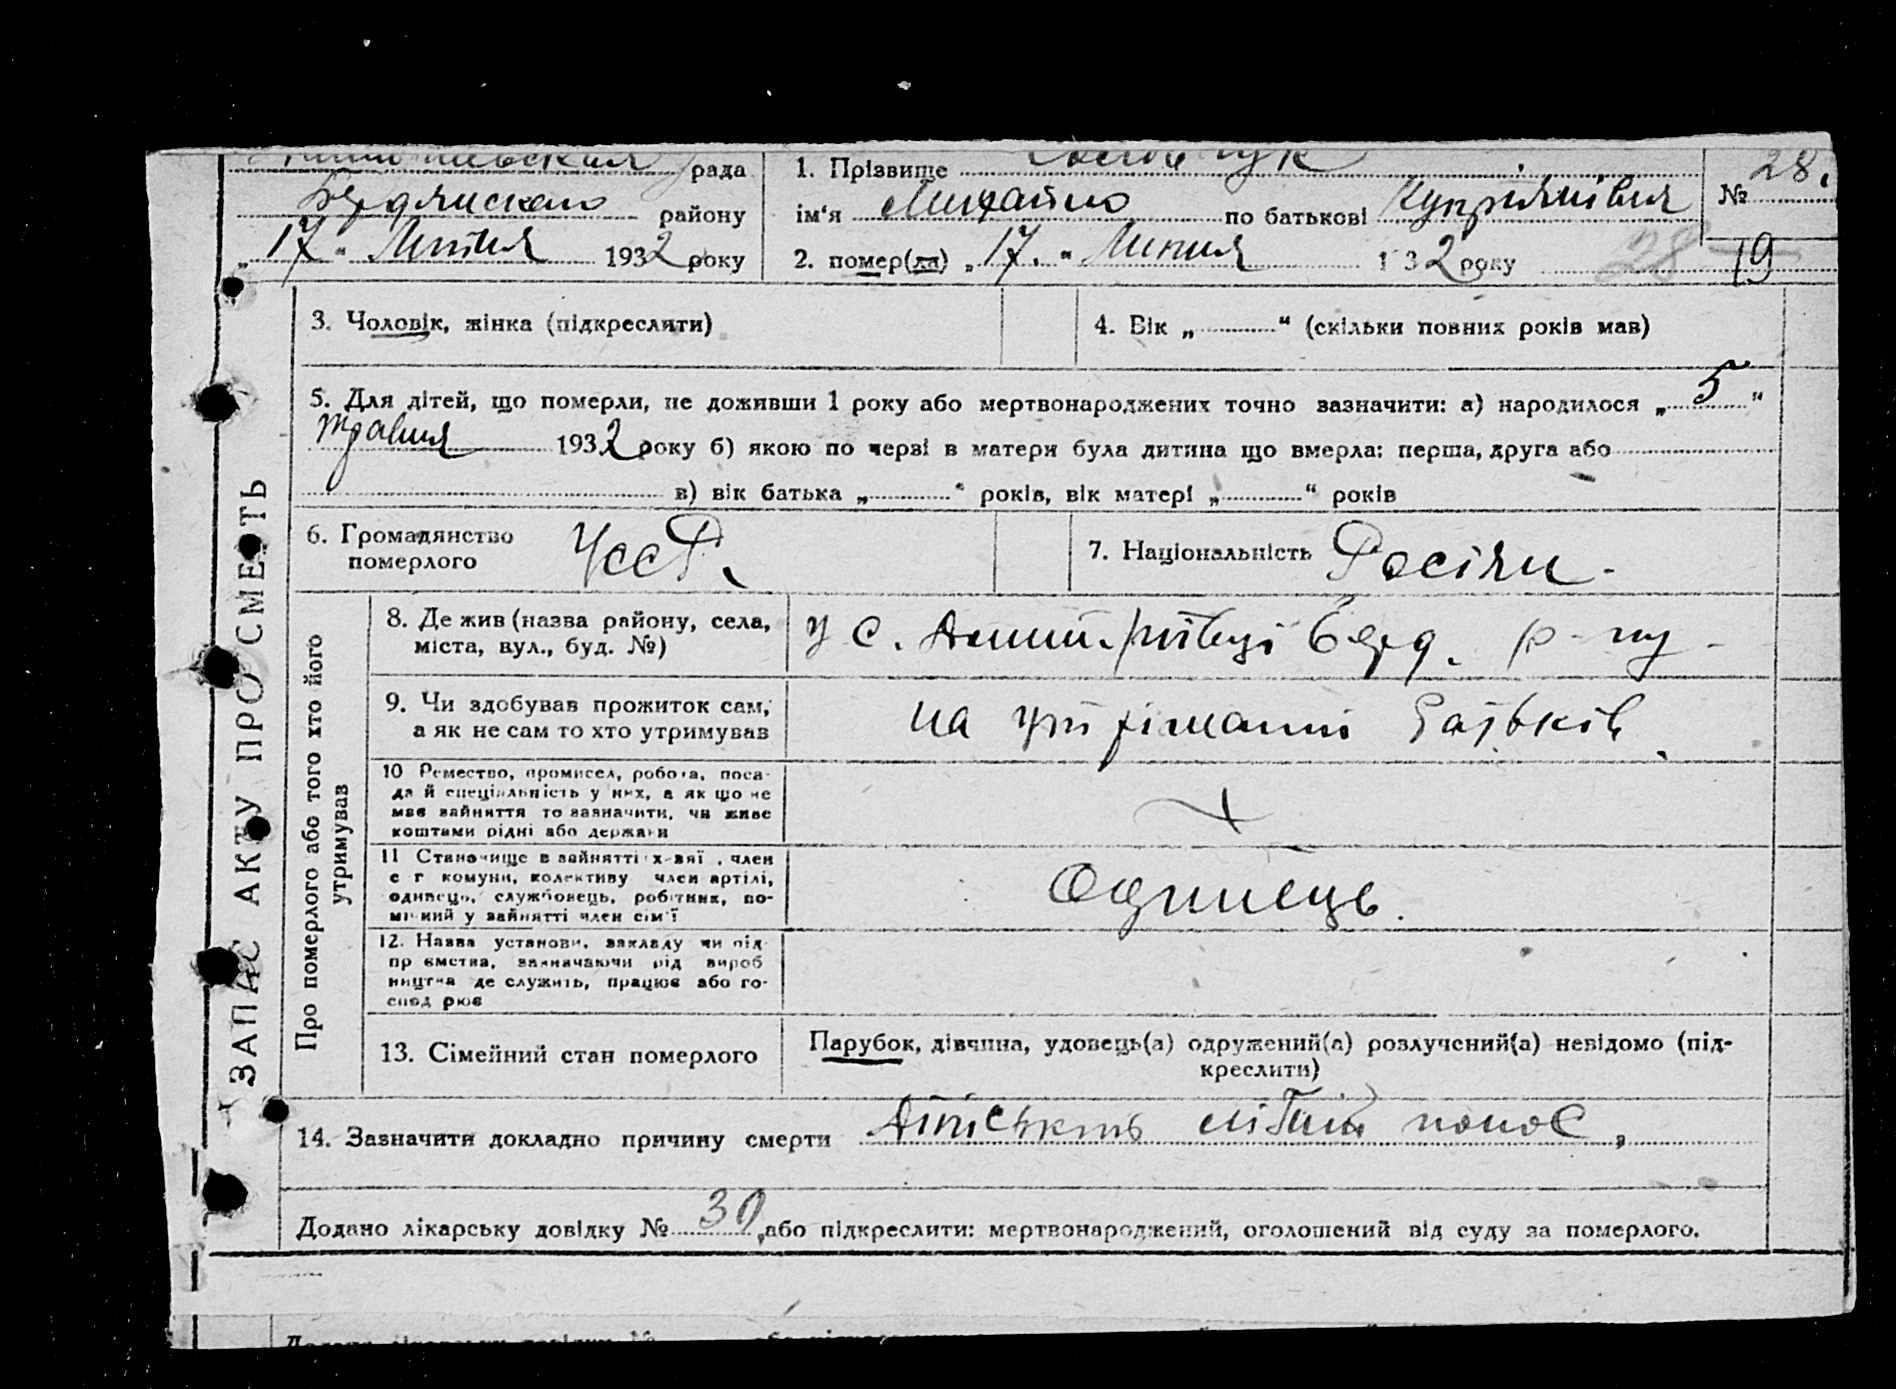 рада
Бердянского району
„17“ Липня 1932 року
1. Прізвище
ім‘я Михайло по батькові Купріянівич
2. помер(ла) „17.“ Липня 1 32 року
№ 28.
28 19
3. Чоловік, жінка (підкреслити)
4. Вік „ “ (скільки повних років мав)
5. Для дітей, що померли, не доживши 1 року або мертвонароджених точно зазначити: а) народилося „5“
травня 1932 року б) якою по черві в матери була дитина що вмерла: перша, друга або
в) вік батька „ “ років, вік матері „ “ років
6. Громадянство
померлого УССР.
7. Національність Росіян.
ЗАПАС АКТУ ПРО СМЕ ТЬ
Про померлого або того хто його
утримував
8. Де жив (назва району, села,
міста, вул., буд. №)
у с. Берд. р-ну
9. Чи здобував прожиток сам,
а як не сам то хто утримував
на утріманні батьків.
10 Ремество, промисел, робота, поса-
да й спеціяльність у них, а як що не
має зайняття то зазначити, чи живе
коштами рідні або держави
11 Становище в зайнятті х-зяї , член
с г комуни, колективу член артілі,
одинець, службовець, робітник, по-
мічний у зайнятті член сім'ї
Одинець.
12. Назва установи, закладу чи під
пр ємства, зазначаючи рід вироб
ництва де служить, працює або го-
спод рює
13. Сімейний стан померлого
Парубок, дівчина, удовець(а) одружений(а) розлучений(а) невідомо (під-
креслити)
14. Зазначити докладно причину смерти понос,
Додано лікарську довідку № 30, або підкреслити: мертвонароджений, оголошений від суду за померлого.